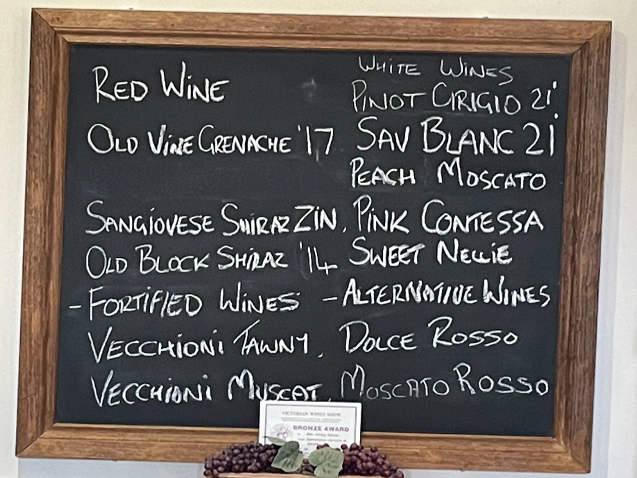 RED WINE
OLD VINE GRENACHE '17
SANGIOVESE SHIRAZ ZIN.
OLD BLOCK SHIRAZ '14
- FORTIFIED WINES
VECCHIONI TAWNY.
VECCHIONI MUSCAT.
WHITE WINES
PINOT GRIGIO 21'
SAV BLANC 21
PEACH MOSCATO
PINK CONTESSA
SWEET NELLIE
- ALTERNATIVE WINES
DOLCE ROSSO
MOSCATO ROSSO
VICTORIAN WINES SHOW
BRONZE AWARD